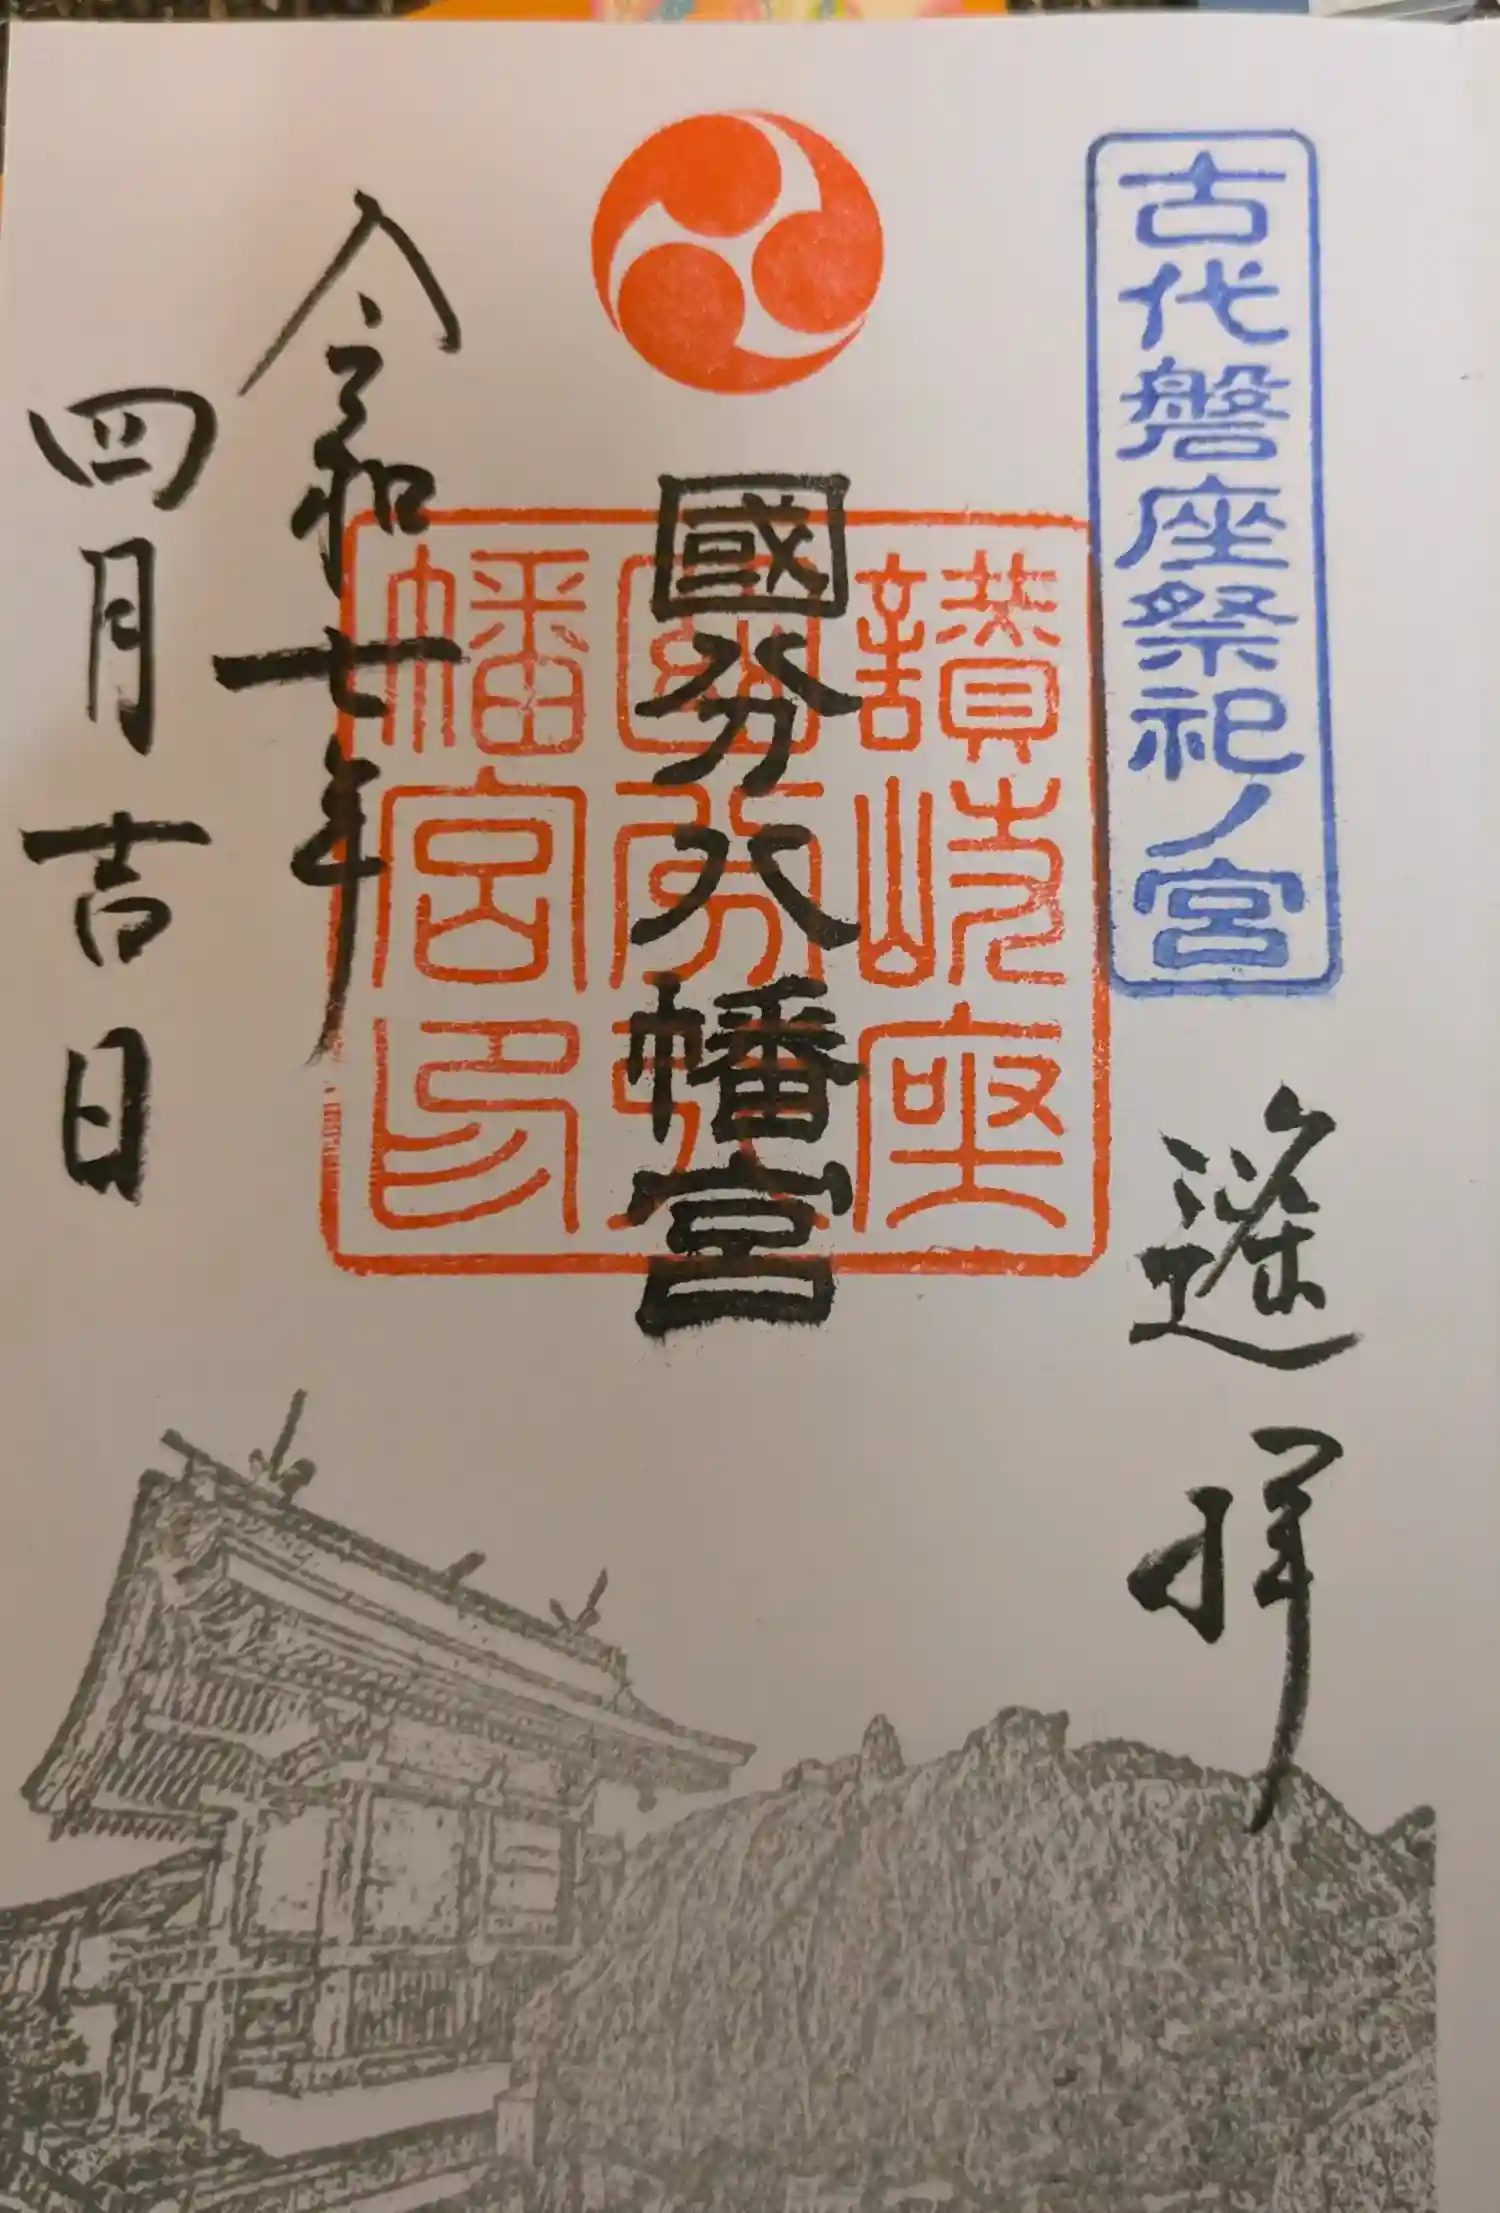 古代磐座祭祀ノ宮
遙拝
讃岐座
國分八
幡宮印
國分八幡宮
令和七年
四月吉日